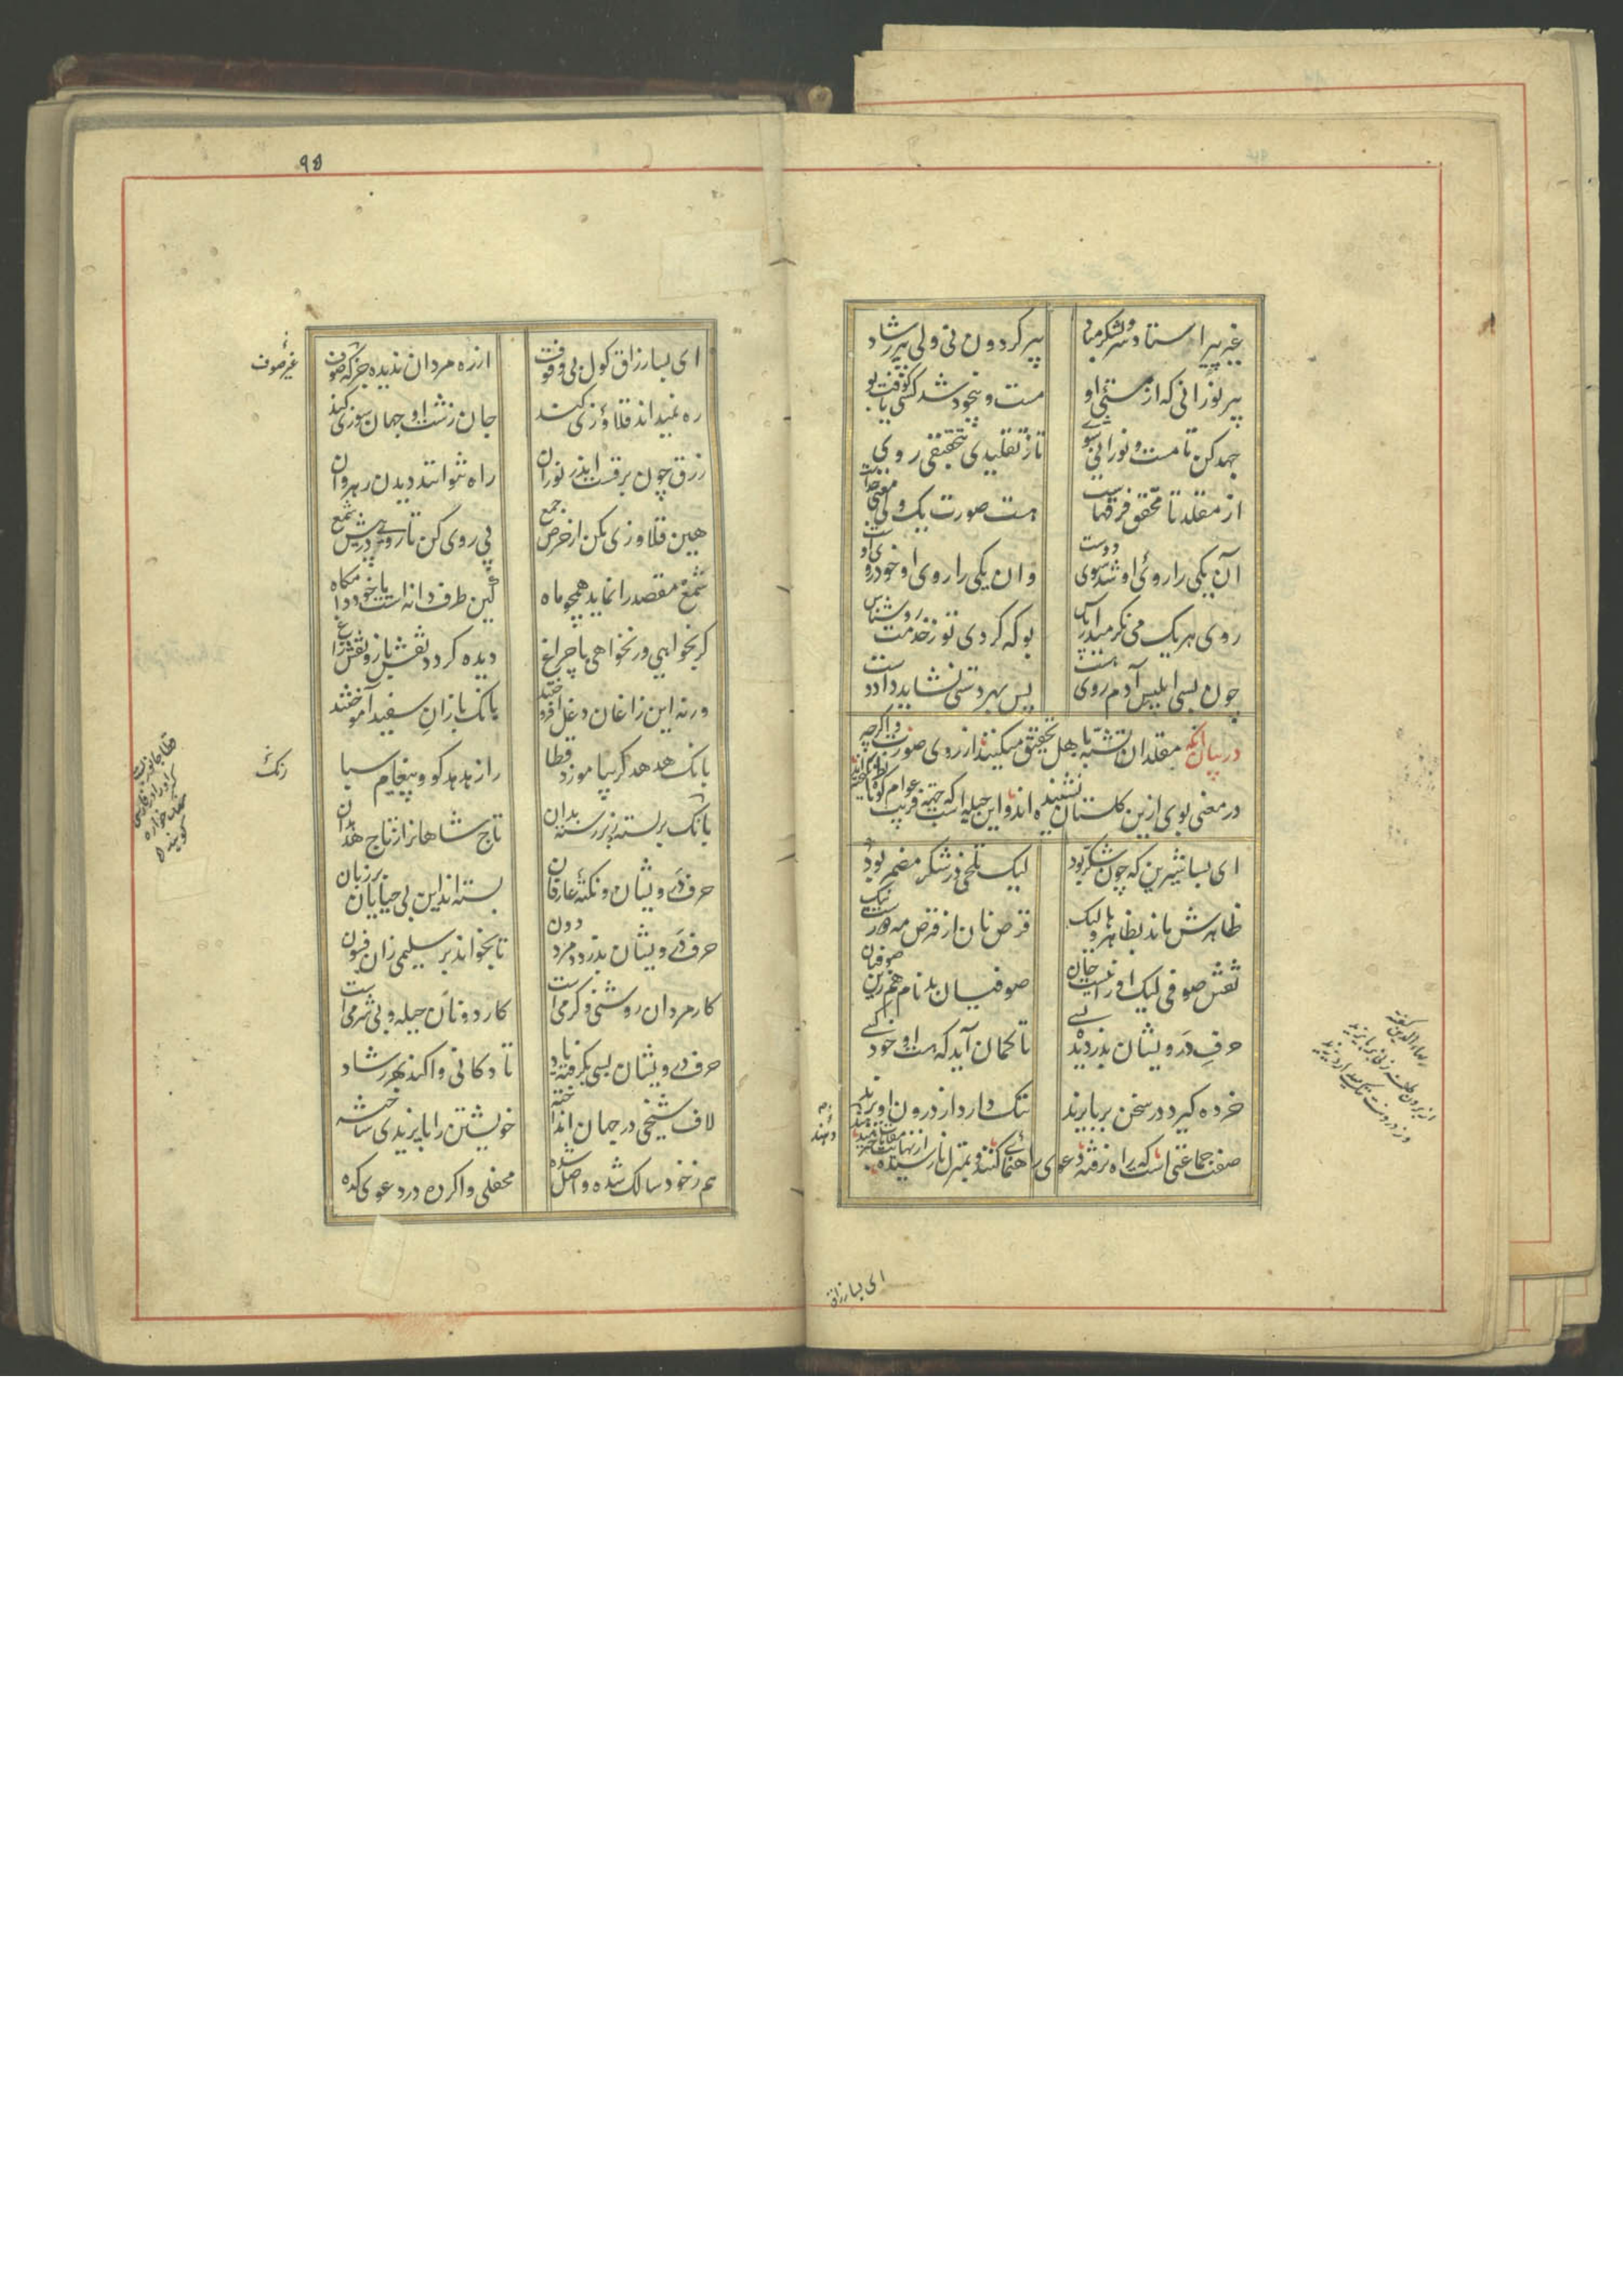 غیر پیر استاد و سر لشکر مباد
پیر کردون نی ولی پیر رشاد
پیر نورانی که از مستئ او
مست و بیخود شد کسی کو یافت بو
جهد کن تا مست و نورانی شوی
تا ز تقلیدی بتحقیقی روی
از مقلد تا محقق فرقهاست
هست صورت یک ولی معنی جداست
آن یکی را روئ او شد سوی دوست
وان یکی را روی او خود روی اوست
روی هر یک می نکر میدار پاس
بو که کردی تو ز خدمت رو شناس
چون بسی ابلیس آدم روی هست
پس بهر دستی نشاید داد دست
در بیان آنکه مقلدان تشبّه با هل تحقیق میکنند از روی صورت و اکرچه
در معنی بوی ازین کلستان نشنیده اند و این حیله ایست که جهة فریب عوام
ای بسا شیرین که چون شکّر بود
لیک تلخی در شکر مضمر بود
ظاهرش ماند بظاهرها ولیک
قرص نان از قرص مه دورست نیک
نقش صوفی لیک او را نیست جان
صوفیان بدنام هم زین صوفیان
حرفِ درویشان بدزدیده بسی
تا کمان آید که هست او خود کسی
خرده کیرد در سخن بر بایزید
ننک دارد از درون او یزید
صفت جماعتی است که راه نرفته دعوی راهنمائی کنند و بمنزل نارسیده
دم
دهند
بهاء الدین کفته
از برون طعنه زنی بر بایزید
وز درونت ننک میدارد یزید
ای بسا زراق
۹۵
ای بسا زراق کول بی وقوف
از ره مردان ندیده جز که صوف
غیر صوف
ره نمیداند قلاؤزی کند
جان زشت او جهان سوزی کند
زرق چون برقست اندر نور آن
راه نتوانند دیدن رهروان
هین قلاوزی مکن از حرص جمع
پی روی کن تا رود در پیش شمع
شمع مقصد را نماید همچو ماه
کین طرف دانه است یا خود دامکاه
کر بخواهی ور نخواهی با چراغ
دیده کردد نقش باز و نقش زاغ
ورنه این زاغان دغل افروختند
بانک بازانِ سفید آموختند
بانک هدهد کر بیاموزد قطا
راز هدهد کو و پیغام سبا
رنک
قطا جانوریست
که اورا در فارسی
سفارود
کویند
بانک بر رسته ز بر بسته بدان
تاج شاهان را ز تاج هدهدان
حرف درویشان و نکتهٔ عارفان
بسته اند این بی حیایان بر زبان
حرف درویشان بدزدد مرد دون
تا بخواند بر سلیمی زان فسون
کار مردان روشنی و کرمی است
کار دونان حیله و بی شرمی است
حرف درویشان بسی بکرفته یاد
تا دکانی واکند بهر رشاد
لاف شیخی در جهان انداخته
خویشتن را بایزیدی ساخته
هم ز خود سالک شده واصل شده
محفلی وا کرده در دعوی کده